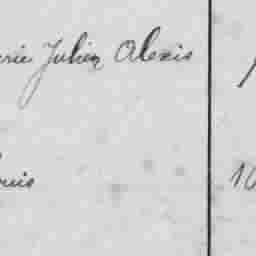 rie Julien Alexis
ouis 10